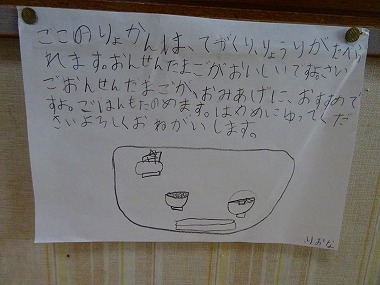 ここのりょかんは、てがくり、りょうりがたべら
れます。おんせんたまごがおいしいですよ。さい
ごおんせんたまごが、おみあげに、おすすめで
すよ。ごはんもたのめます。はやめにゆってくだ
さいよろしくおねがいします。
りおな